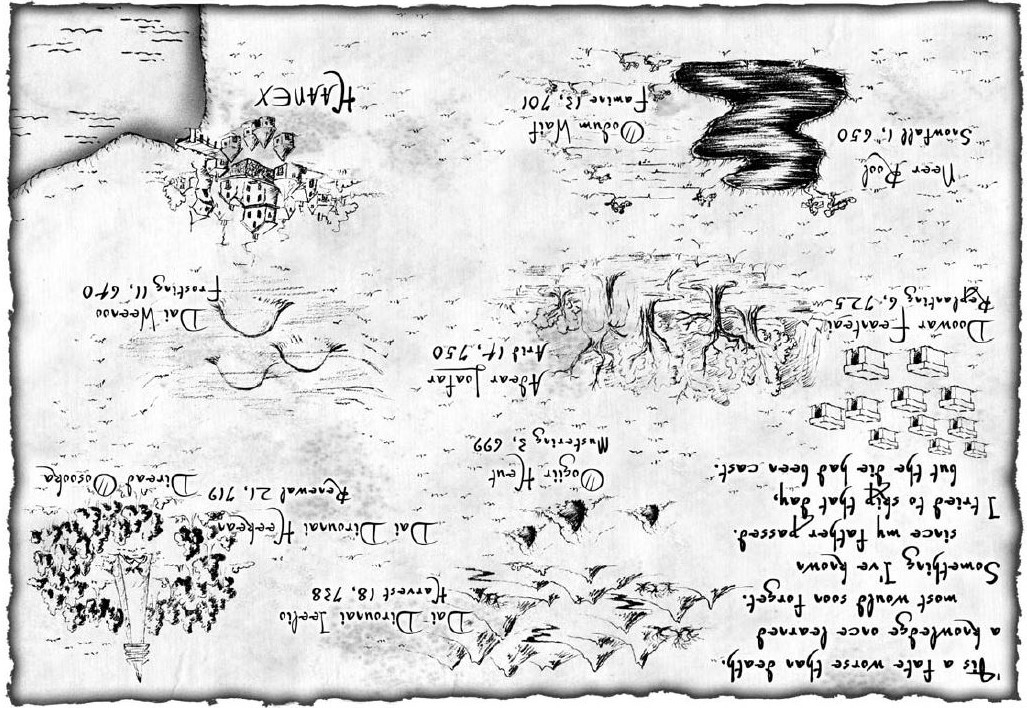 'Tis a fate worse than death,
a knowledge once learned
most would soon forget.
Something I've known
since my father passed.
I tried to skip that day,
but the die had been cast.
Dai-Dirounai Teelio
Harvest 18, 738
Dai Dirounai Heekean
Renewal 21, 719
Diread Oosooka
Oogiir Heut
Mustering 3, 699
Doowar Feanteai
Replanting 6, 725
Adear Joafar
Arid 14, 750
Dai Weenoo
Frosting 11, 640
Neer Rool
Snowfall 1, 650
Oodum Waif
Famine 13, 701
HAANEX